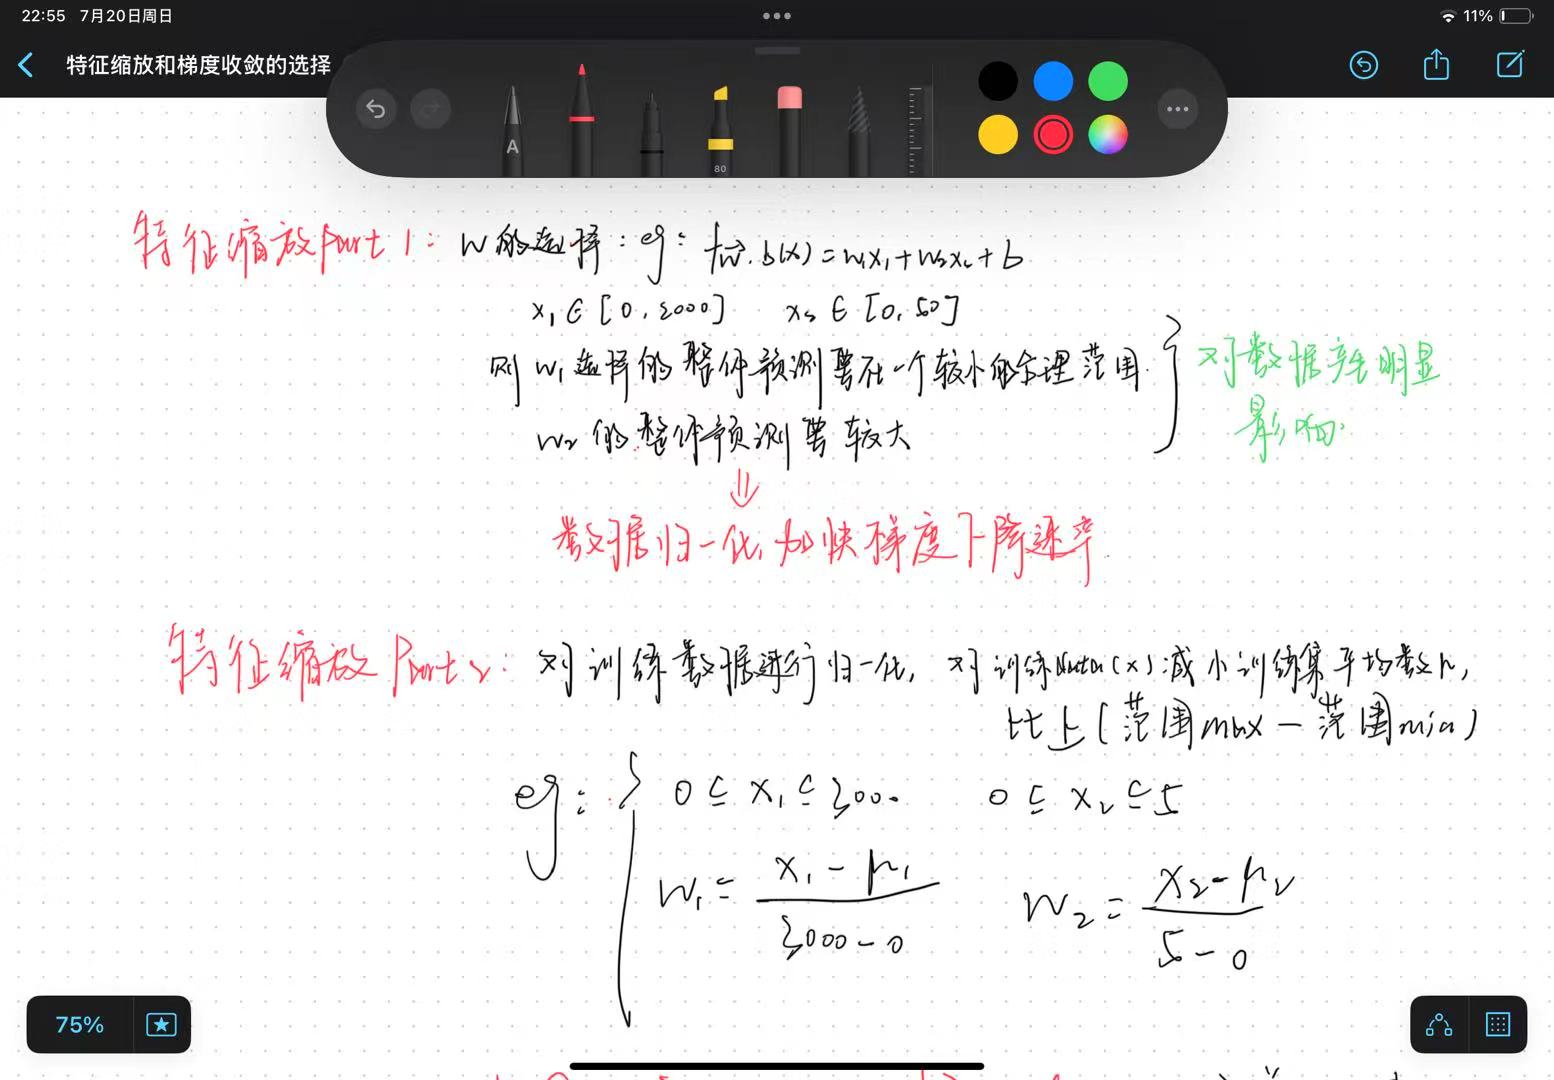 22:55 7月20日周日
11%
特征缩放和梯度收敛的选择
A
80
特征缩放Part 1: W的选择: eg: f w⃗.b(x)=w₁x₁+w₂x₂+b
x₁∈[0,2000] x₂∈[0,50]
则 w₁选择的整体预测要在一个较小的合理范围.
对数据产生明显
w₂的整体预测要较大
影响.
⇓
数据归一化,加快梯度下降速率.
特征缩放Part 2: 对训练数据进行归一化, 对训练data(x)减小训练集平均数μ,
比上(范围max-范围min)
eg: 0≤x₁≤2000 0≤x₂≤5
w₁=(x₁-μ₁)/(2000-0) w₂=(x₂-μ₂)/(5-0)
75%